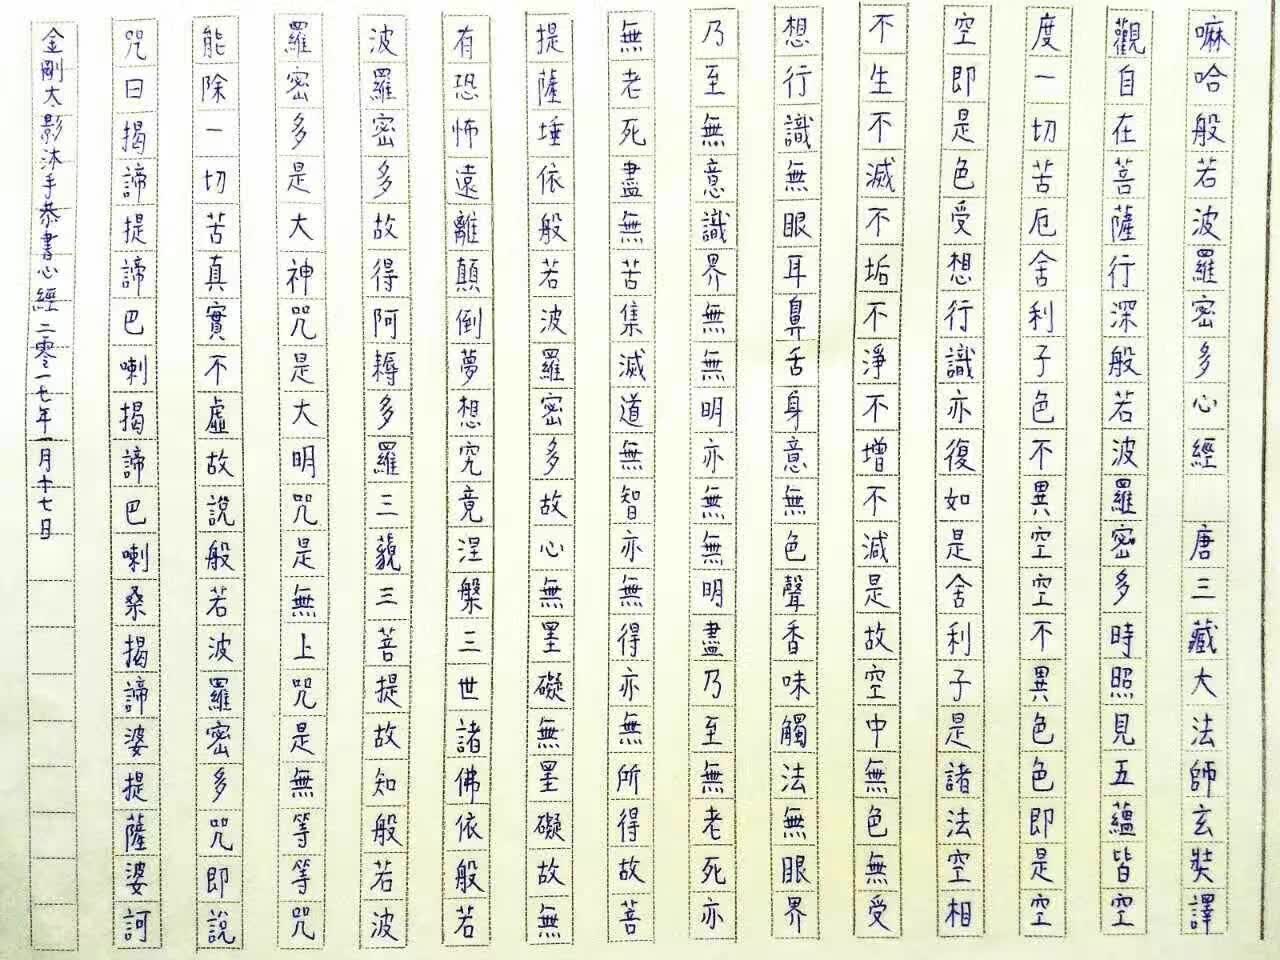 嘛哈般若波羅密多心經 唐三藏大法師玄奘譯
觀自在菩薩行深般若波羅密多時照見五蘊皆空
度一切苦厄舍利子色不異空空不異色色即是空
空即是色受想行識亦復如是舍利子是諸法空相
不生不滅不垢不淨不增不減是故空中無色無受
想行識無眼耳鼻舌身意無色聲香味觸法無眼界
乃至無意識界無無明亦無無明盡乃至無老死亦
無老死盡無苦集滅道無智亦無得亦無所得故菩
提薩埵依般若波羅密多故心無罣礙無罣礙故無
有恐怖遠離顛倒夢想究竟涅槃三世諸佛依般若
波羅密多故得阿耨多羅三藐三菩提故知般若波
羅密多是大神咒是大明咒是無上咒是無等等咒
能除一切苦真實不虛故說般若波羅密多咒即說
咒曰揭諦提諦巴喇揭諦巴喇桑揭諦婆提薩婆訶
金剛大影沐手恭書心經二零一七年一月十七日